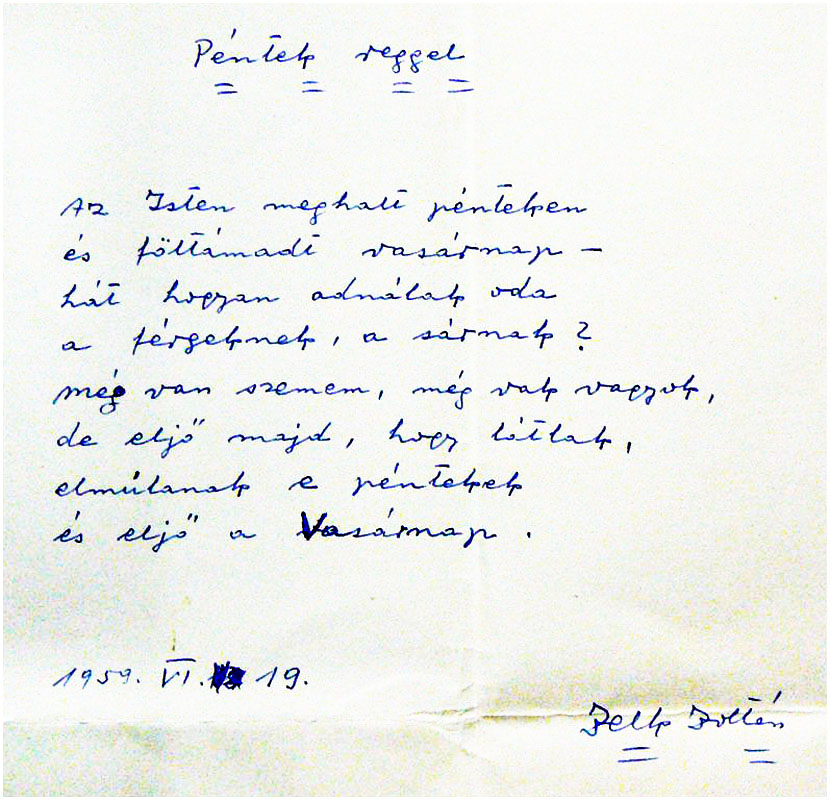 Péntek reggel
Az Isten meghalt pénteken
és föltámadt vasárnap –
hát hogyan adnálak oda
a férgeknek, a sárnak?
még van szemem, még vak vagyok,
de eljő majd, hogy látlak,
elmúlanak e péntekek
és eljő a Vasárnap.
1959. VI. 19.
Zelk Zoltán